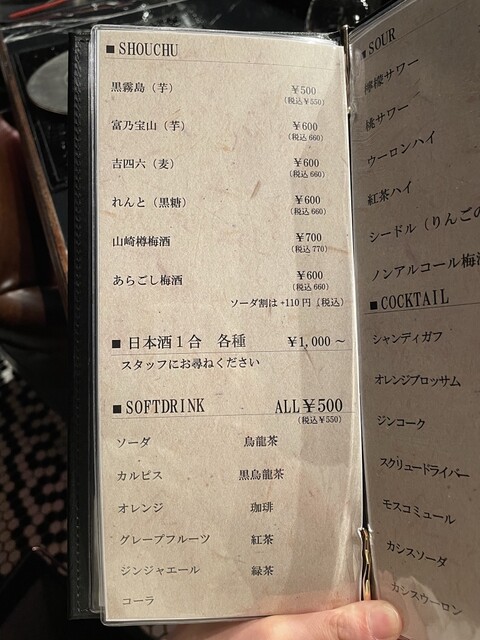 ■ SHOUCHU
黒霧島（芋） ￥500
（税込￥550）
富乃宝山（芋） ￥600
（税込 660）
吉四六（麦） ￥600
（税込 660）
れんと（黒糖） ￥600
（税込 660）
山崎樽梅酒 ￥700
（税込 770）
あらごし梅酒 ￥600
（税込 660）
ソーダ割は +110 円（税込）
■ 日本酒１合 各種 ￥1,000 ～
スタッフにお尋ねください
■ SOFTDRINK ALL￥500
（税込￥550）
ソーダ 烏龍茶
カルピス 黒烏龍茶
オレンジ 珈琲
グレープフルーツ 紅茶
ジンジャエール 緑茶
コーラ
■ SOUR
檸檬サワー
桃サワー
ウーロンハイ
紅茶ハイ
シードル（りんごの
ノンアルコール梅酒
■ COCKTAIL
シャンディガフ
オレンジブロッサム
ジンコーク
スクリュードライバー
モスコミュール
カシスソーダ
カシスウーロン